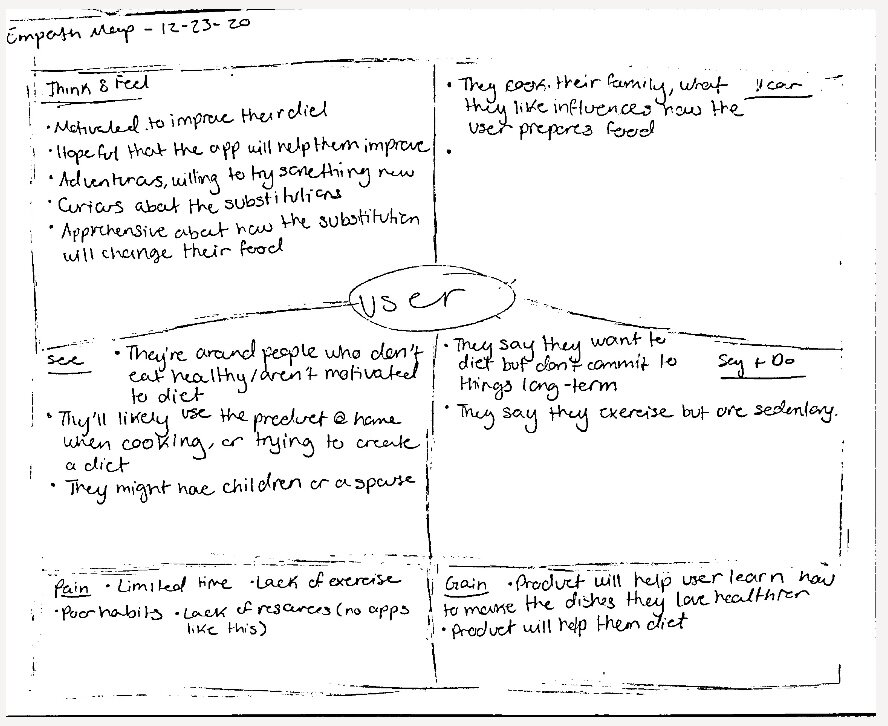 Empath Map - 12-23-20
Think & Feel
• Motivated to improve their diet
• Hopeful that the app will help them improve
• Adventurous, willing to try something new
• Curious about the substitutions
• Apprehensive about how the substitution
will change their food
Hear
• They cook their family, what
they like influences how the
user prepares food
•
user
See
• They're around people who don't
eat healthy/aren't motivated
to diet
• They'll likely use the product @ home
when cooking, or trying to create
a diet
• They might have children or a spouse
Say + Do
• They say they want to
diet but don't commit to
things long-term
• They say they exercise but are sedentary.
Pain • Limited time • Lack of exercise
• Poor habits • Lack of resources (no apps
like this)
Gain • Product will help user learn how
to make the dishes they love healthier
• Product will help them diet